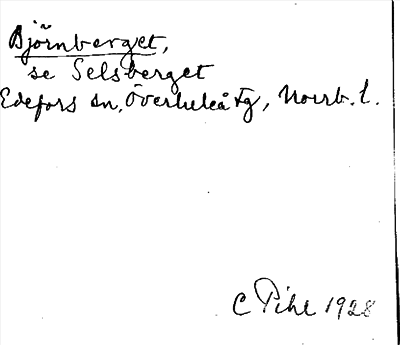 Björnberget,
se Selsberget
Edefors sn, Överluleå tg, Norrb. l.
C Pihl 1928